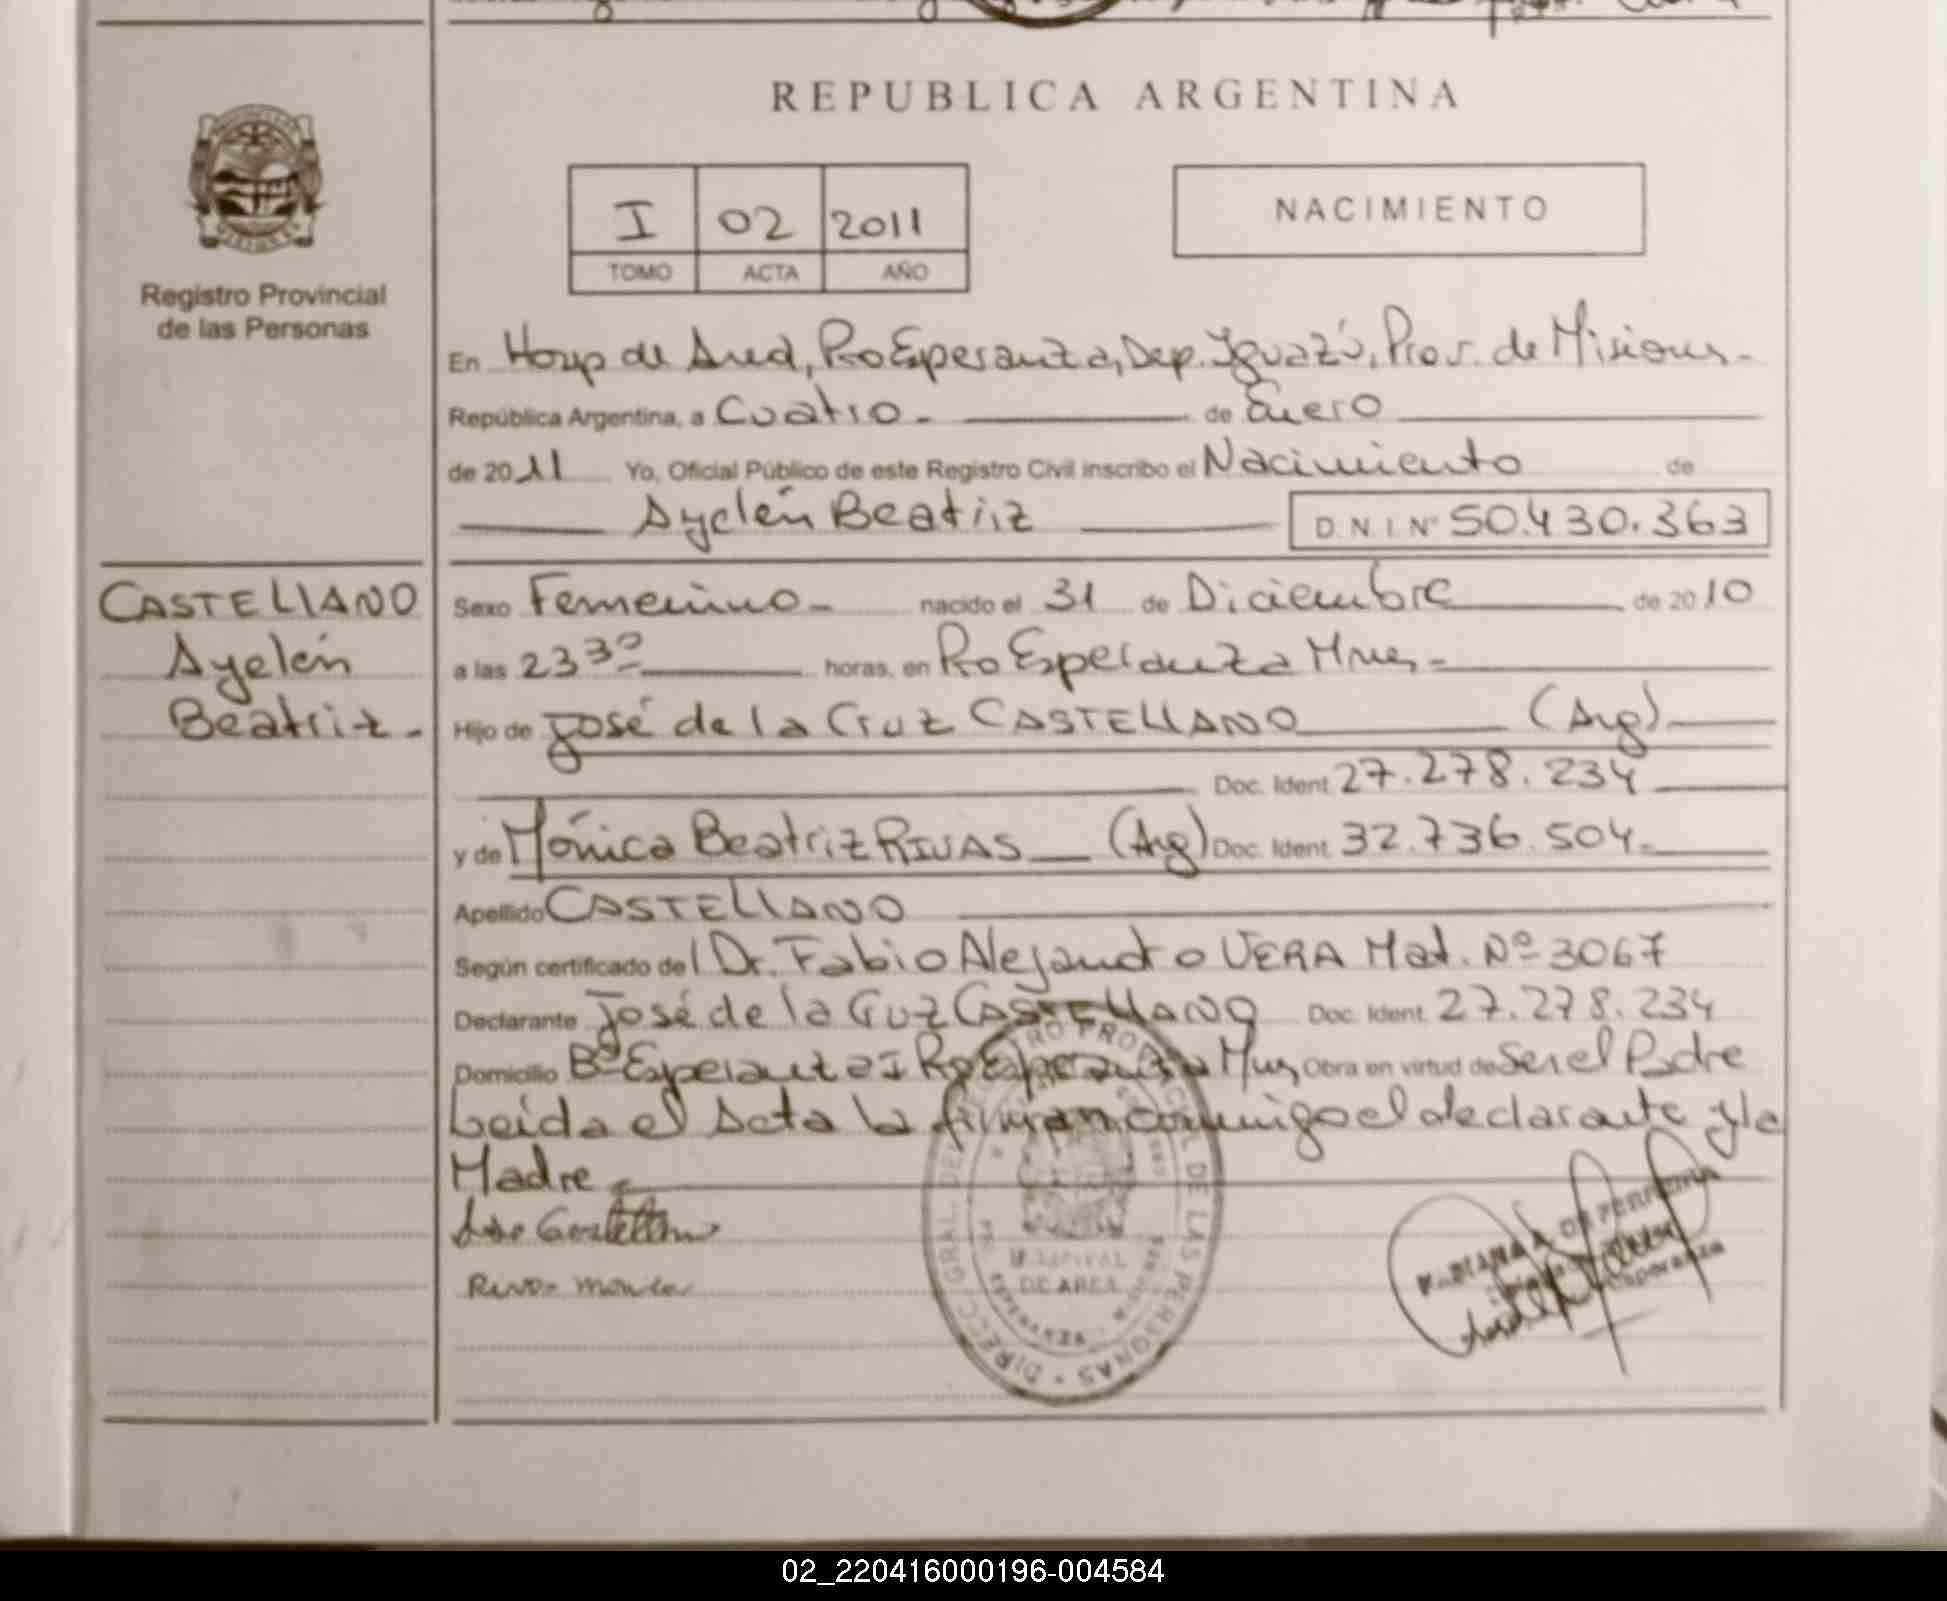 REPUBLICA ARGENTINA
I 02 2011
TOMO ACTA AÑO
NACIMIENTO
Registro Provincial
de las Personas
En Hosp de Area, Pto Esperanza, Dep. Iguazú, Prov. de Misiones.-
República Argentina, a Cuatro.- de Enero
de 2011 Yo, Oficial Público de este Registro Civil inscribo el Nacimiento de
Ayelén Beatriz D.N.I. Nº 50.430.363
CASTELLANO
Ayelén
Beatriz.-
Sexo Femenino.- nacido el 31 de Diciembre de 2010
a las 23 30 horas, en Pto Esperanza Mnes.-
Hijo de José de la Cruz CASTELLANO (Arg)
Doc. Ident. 27.278.234
y de Mónica Beatriz RIVAS (Arg) Doc. Ident. 32.736.504.-
Apellido CASTELLANO
Según certificado del Dr. Fabio Alejandro VERA Mat. Nº 3067
Declarante José de la Cruz CASTELLANO Doc. Ident. 27.278.234
Domicilio Bº Esperanza I Pto Esperanza Mnes Obra en virtud de Ser el Padre
Leida el Acta la firman conmigo el declarante y la
Madre.-
Rivas Monica
DIRECC. GRAL. DEL REGISTRO PROVINCIAL DE LAS PERSONAS
DE AREA
02_220416000196-004584